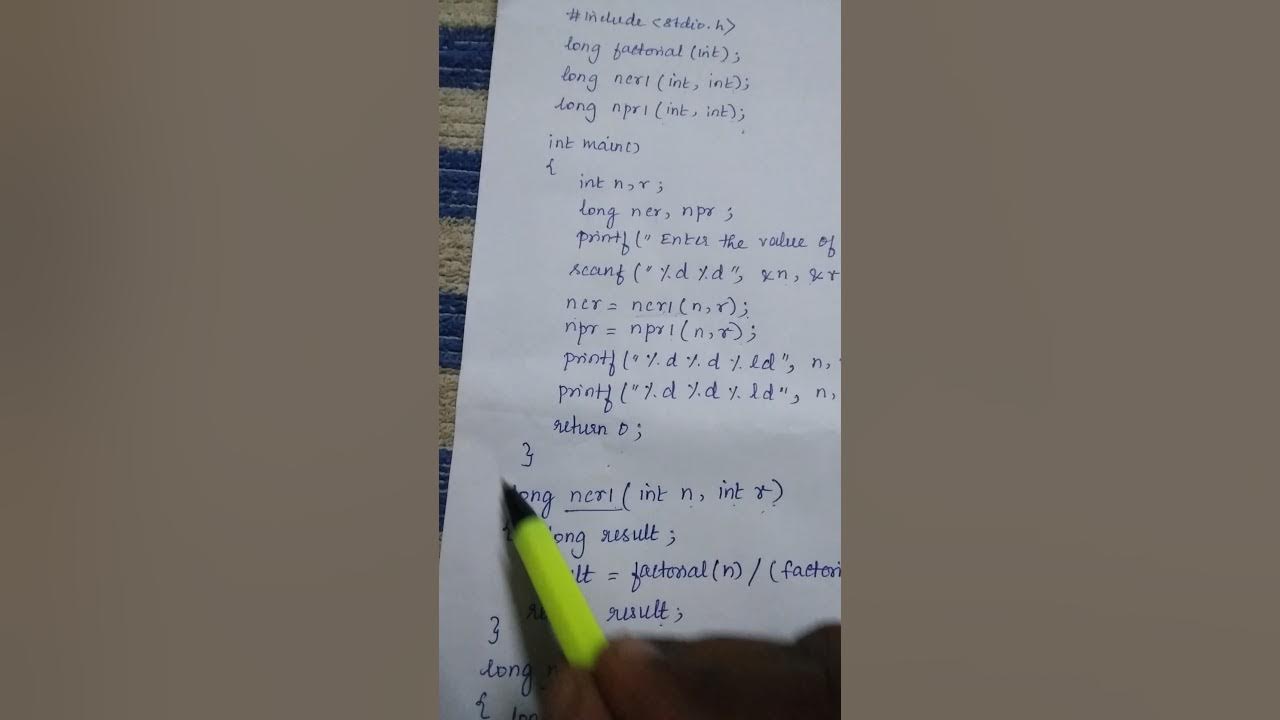 #include <stdio.h>
long factorial (int);
long ncr1 (int, int);
long npr1 (int, int);
int main()
{
int n, r ;
long ncr, npr ;
printf (" Enter the value of
scanf (" %d %d", &n, &r
ncr = ncr1 (n, r);
npr = npr1 (n, r);
printf (" %d %d %ld", n,
printf (" %d %d %ld", n,
return 0 ;
}
long ncr1 ( int n, int r)
{ long result ;
= factorial (n) / (factori
result ;
}
long
{